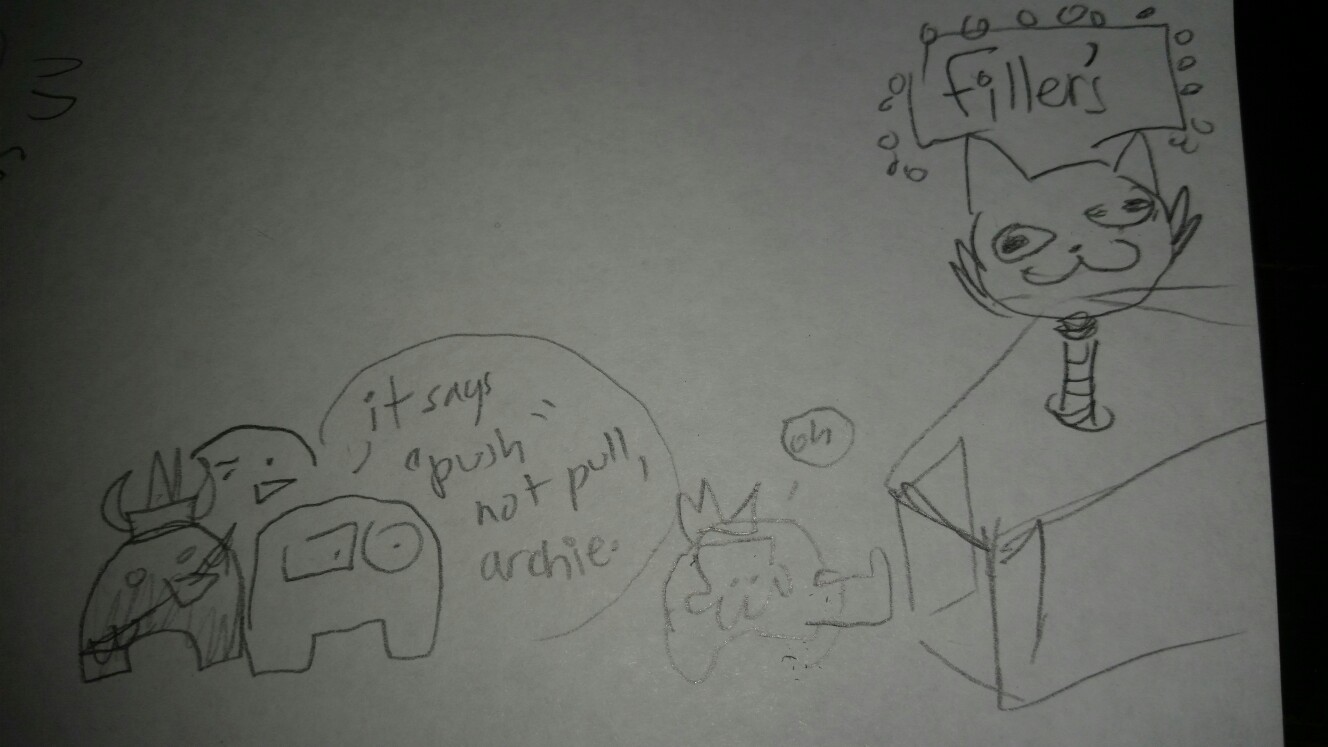 filler's
it says
"push"
not pull,
archie.
oh